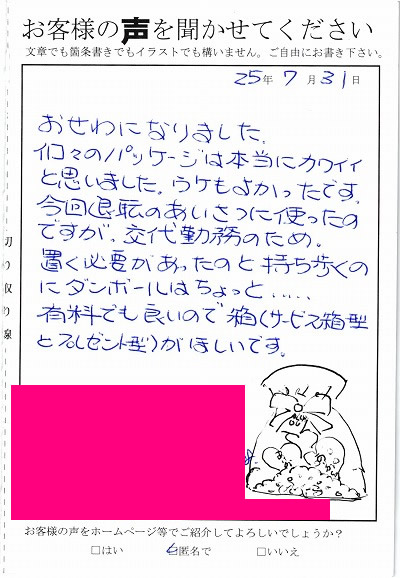 お客様の声を聞かせてください
文章でも箇条書きでもイラストでも構いません。ご自由にお書き下さい。
25年7月31日
おせわになりました。
個々のパッケージは本当にカワイイ
と思いました。ウケもよかったです。
今回退転のあいさつに使ったの
ですが、交代勤務のため。
置く必要があったのと持ち歩くの
にダンボールはちょっと……
有料でも良いので箱(サービス箱型
とプレゼント型)がほしいです。
切り取り線
お客様の声をホームページ等でご紹介してよろしいでしょうか?
□はい ☑匿名で □いいえ